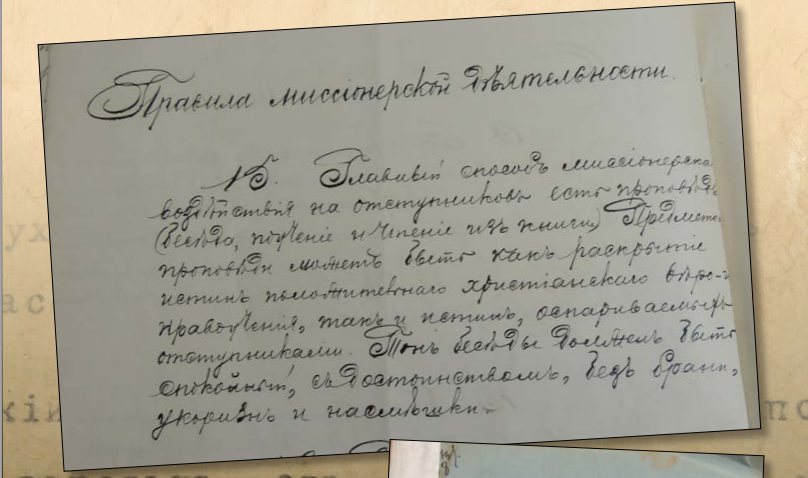 Правила миссіонерской дѣятельности.
15. Главный способъ миссіонерска
воздѣйствія на отступниковъ есть проповѣдь
(бесѣда, поученіе и чтеніе изъ книги) Предмето
проповѣди можетъ быть какъ раскрытіе
истинъ положительнаго христіанскаго вѣро- и
нравоученія, такъ и истинъ, оспариваемыхъ
отступниками. Тонъ бесѣды долженъ быть
спокойный, съ достоинствомъ, безъ брани,
укоризнъ и насмѣшки.
ух
ас
кій
по